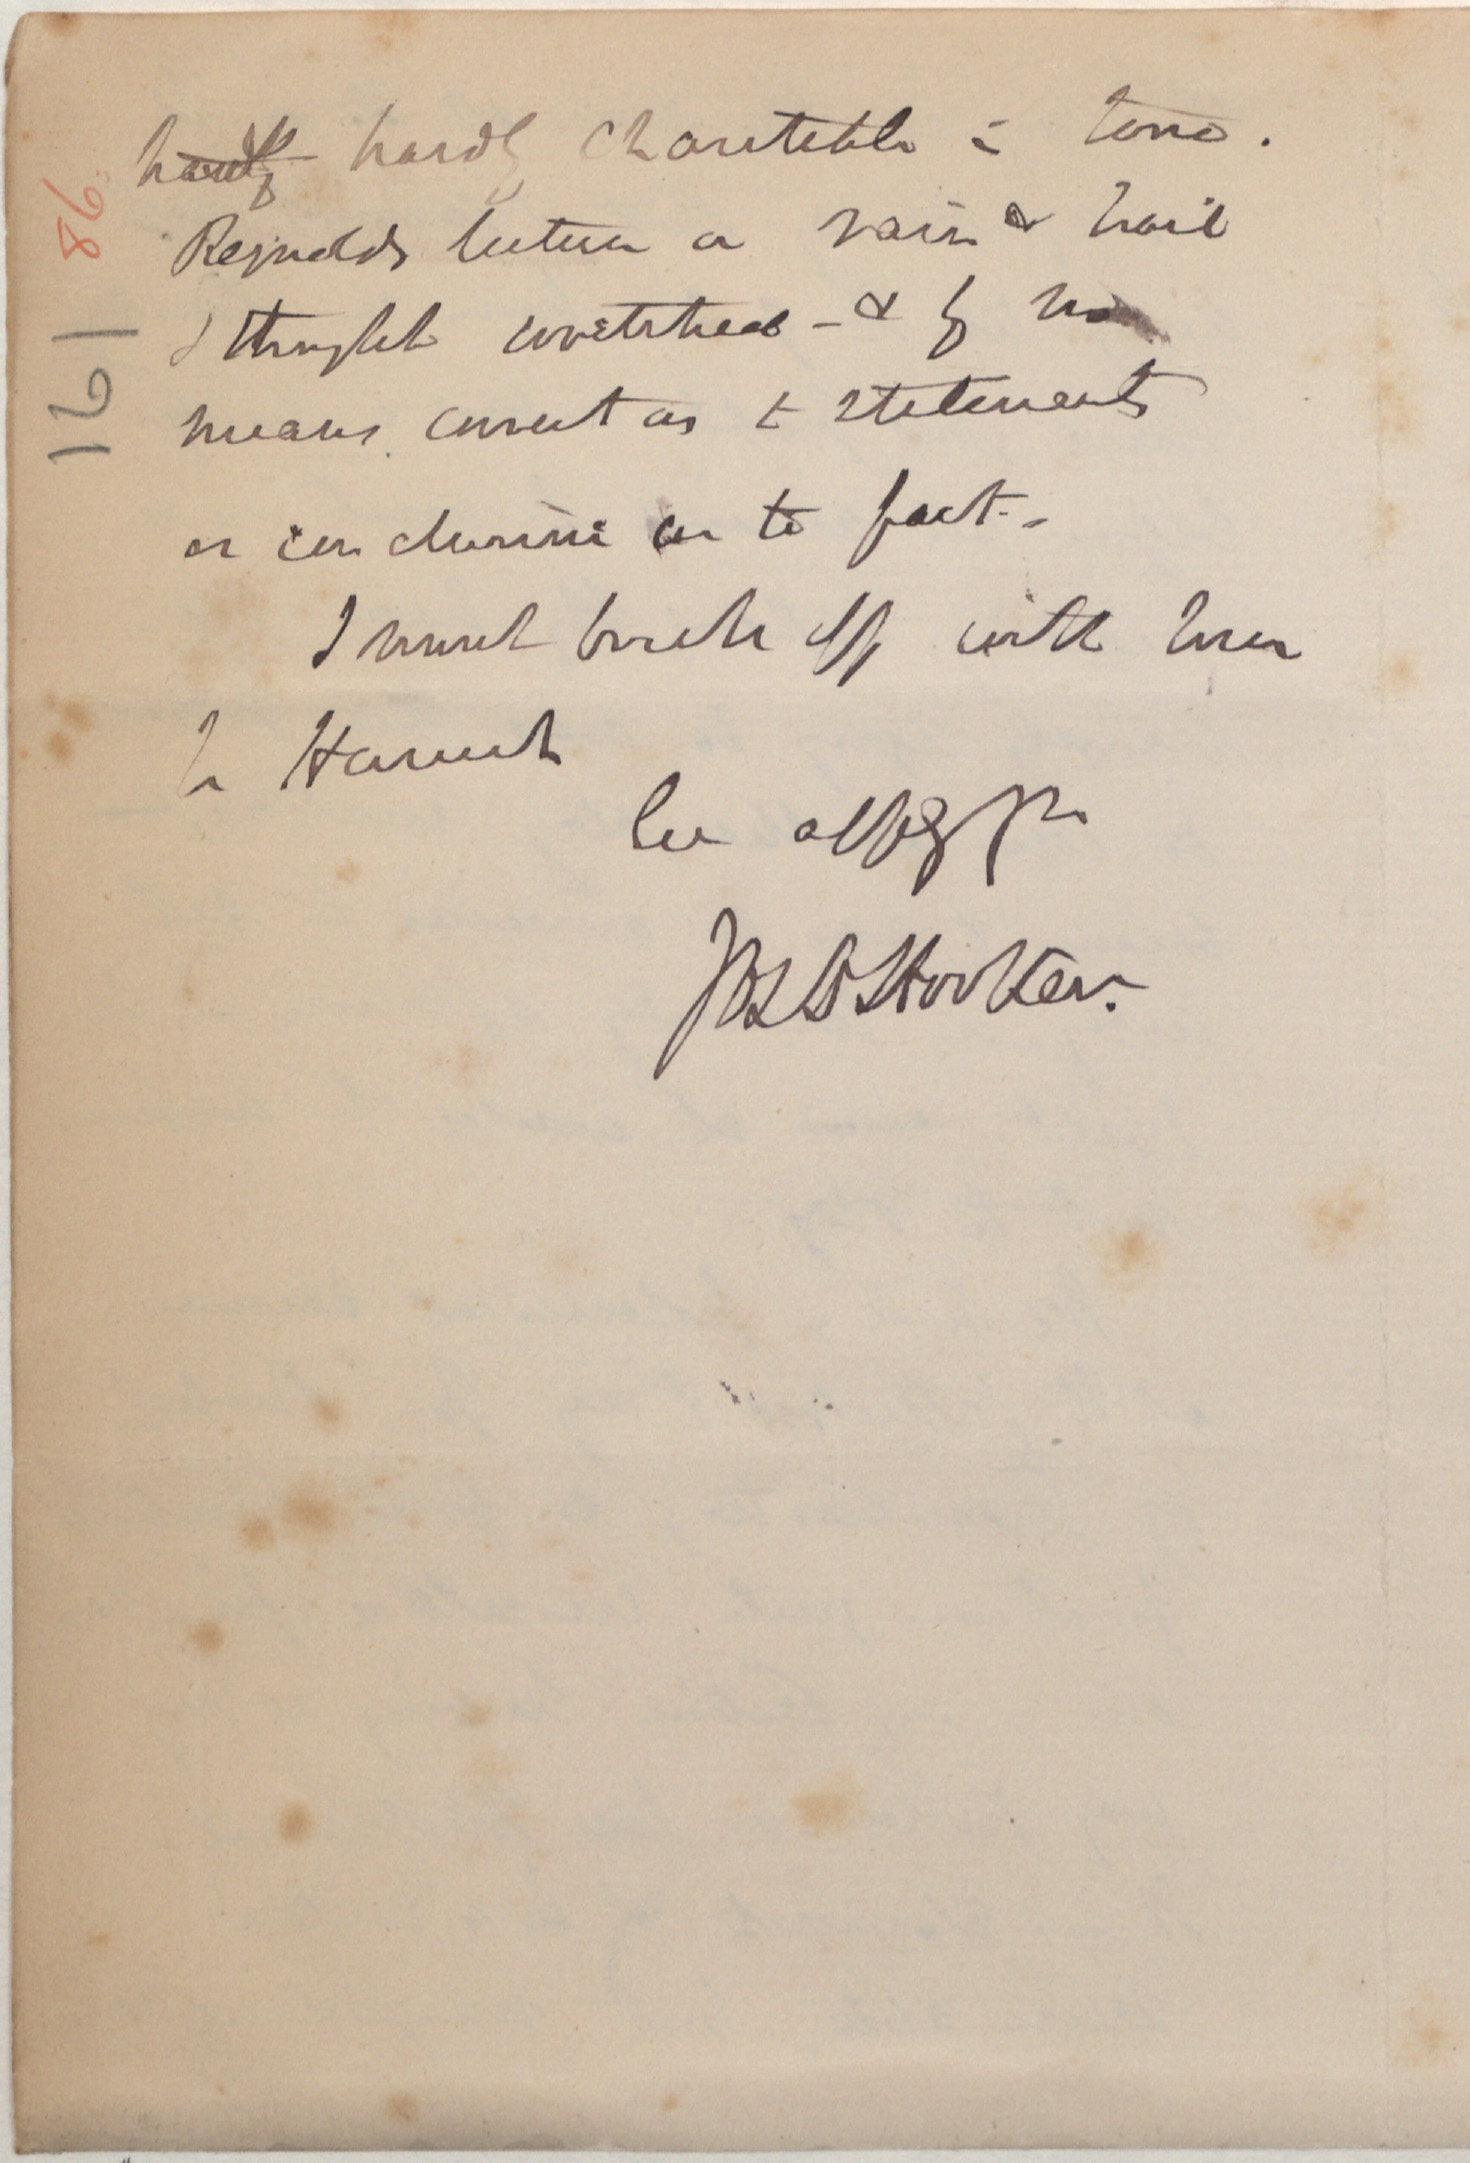 86.
161
hardly hardly charitable in tone.
Reynolds lecture on rain & hail
I thought wretched - & by no
means correct as to statements
or conclusive as to fact -
I must break off with love
to Harriet
Ever aff yr
Jos D Hooker.